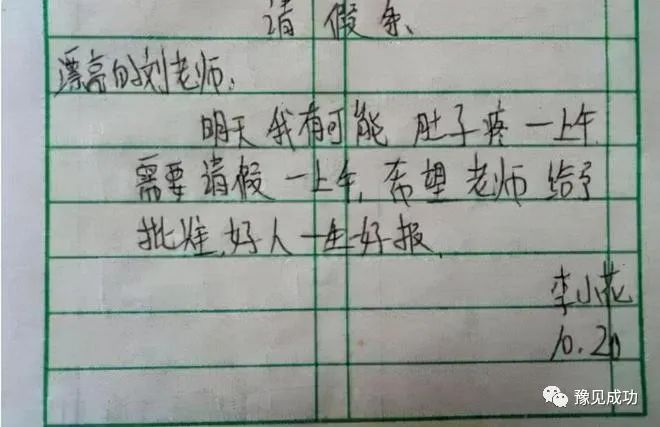 请假条
漂亮的刘老师:
明天我有可能肚子疼一上午.
需要请假一上午,希望老师给予
批准,好人一生好报.
李小花
10.20
豫见成功